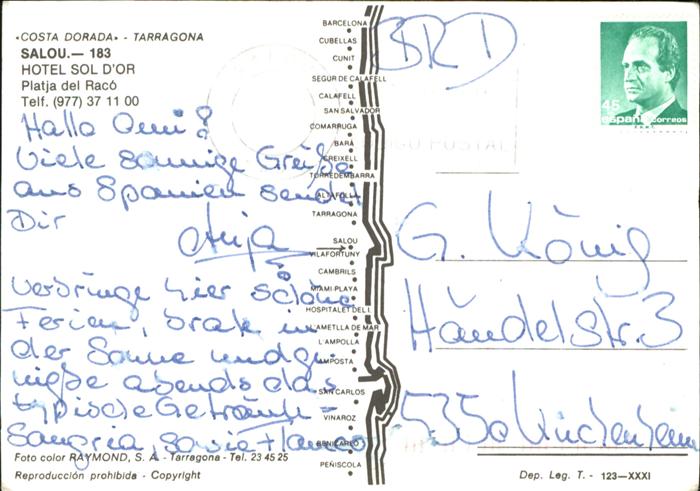 «COSTA DORADA» - TARRAGONA
SALOU.— 183
HOTEL SOL D'OR
Platja del Racó
Telf. (977) 37 11 00
Hallo Omi!
Viele sonnige Grüße
aus Spanien sendet
Dir
Anja
Verbringe hier schöne
Ferien, brate in
der Sonne und ge-
nieße abends das
typische Getränk -
Sangria, sowie Flamenco
Foto color RAYMOND, S. A. - Tarragona - Tel. 23 45 25
Reproducción prohibida - Copyright
BARCELONA
CUBELLAS
CUNIT
SEGUR DE CALAFELL
CALAFELL
SAN SALVADOR
COMARRUGA
BARÁ
CREIXELL
TORREDEMBARRA
ALTAFULLA
TARRAGONA
SALOU
VILAFORTUNY
CAMBRILS
MIAMI-PLAYA
HOSPITALET DEL I.
L'AMETLLA DE MAR
L'AMPOLLA
AMPOSTA
SAN CARLOS
VINAROZ
BENICARLO
PEÑISCOLA
BRD
45
españa correos
F.N.M.T.
POSTAL
G. König
Händelstr. 3
5350
Dep. Leg. T. - 123—XXXI